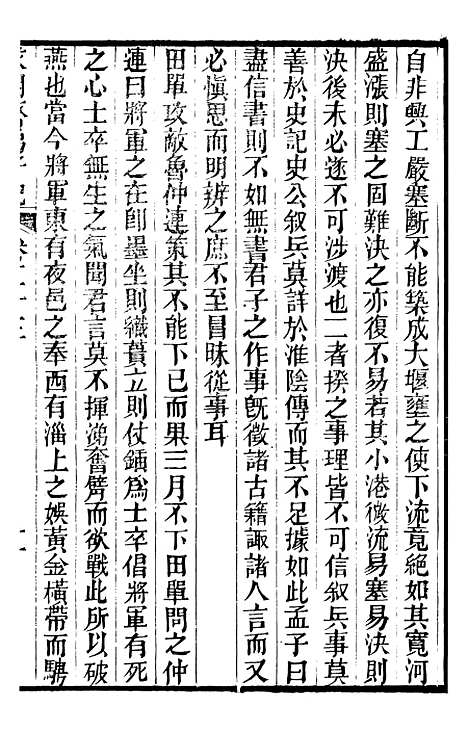 自非興工嚴塞斷不能築成大堰壅之使下流竟絕如其寬河
盛漲則塞之固難決之亦復不易若其小港微流易塞易決則
決後未必遂不可涉渡也二者揆之事理皆不可信敘兵事莫
善於史記史公敘兵莫詳於淮陰傳而其不足據如此孟子曰
盡信書則不如無書君子之作事旣徵諸古籍諏諸人言而又
必愼思而明辨之庶不至冒昧從事耳
田單攻敵魯仲連策其不能下已而果三月不下田單問之仲
連曰將軍之在卽墨坐則織蕢立則仗鍤爲士卒倡將軍有死
之心士卒無生之氣聞君言莫不揮涕奮臂而欲戰此所以破
燕也當今將軍東有夜邑之奉西有淄上之娛黃金橫帶而騁